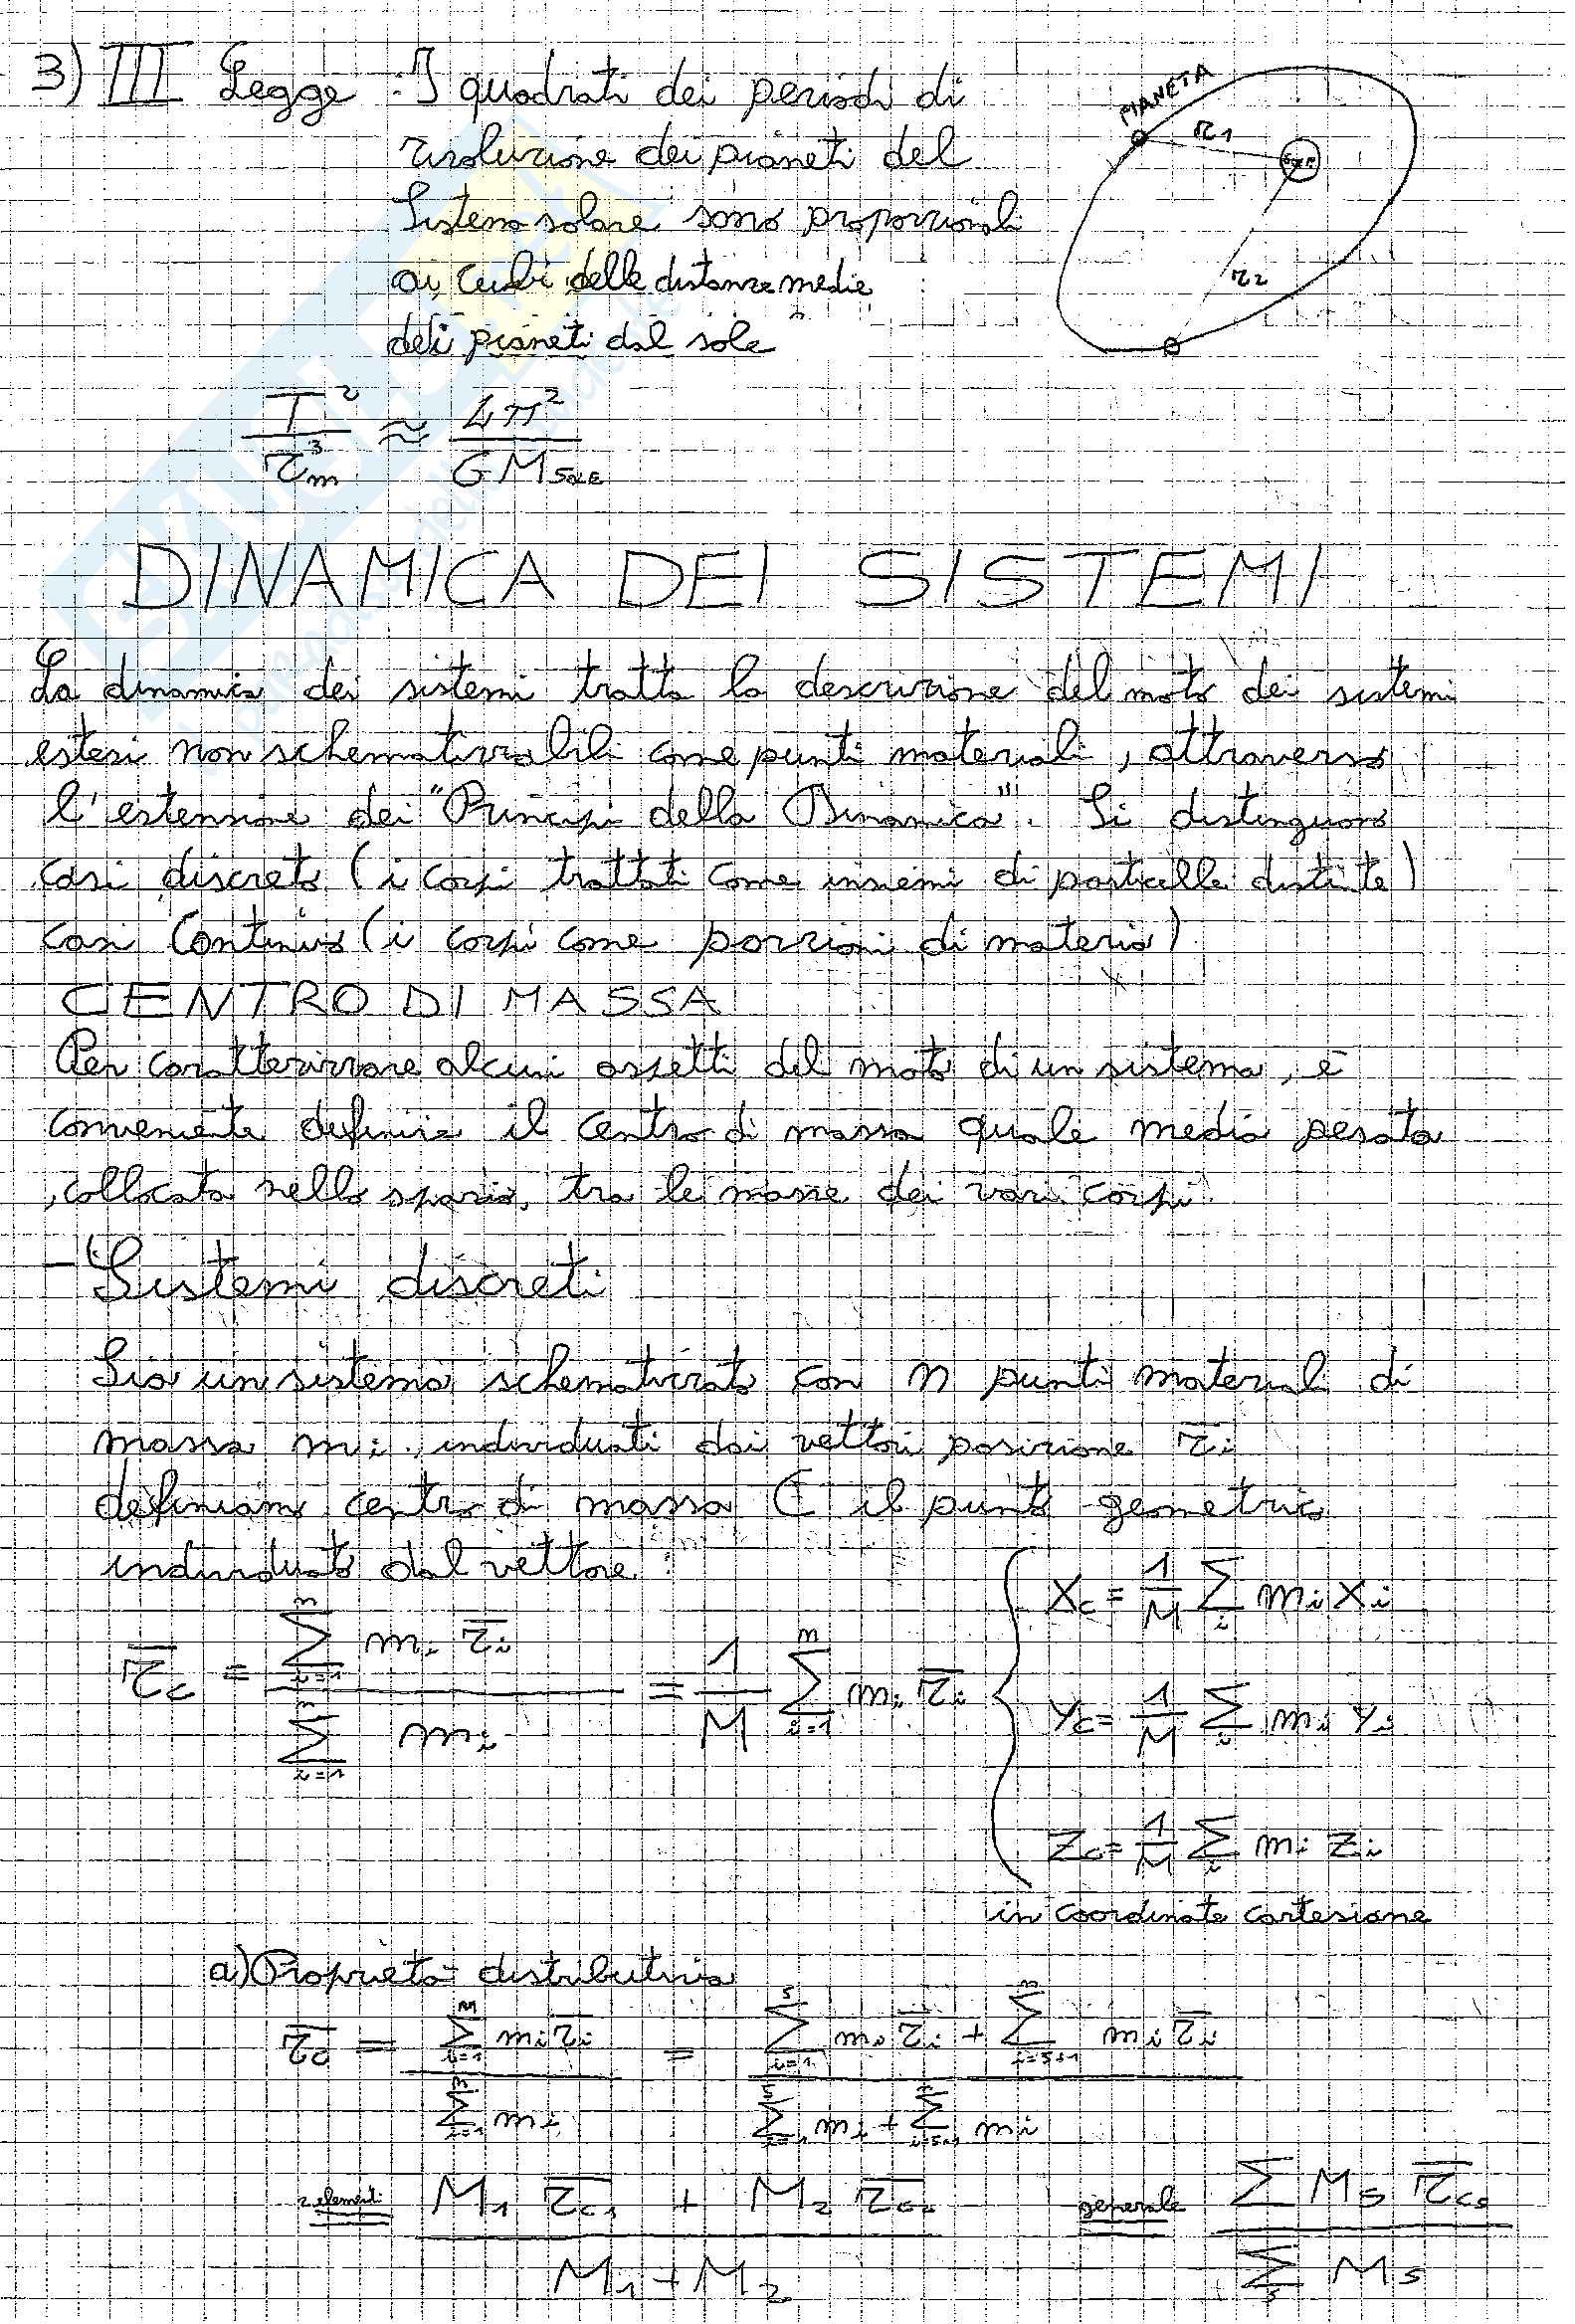 3) III Legge : I quadrati dei periodi di
rivoluzione dei pianeti del
Sistema solare sono proporzionali
ai cubi delle distanze medie
dei pianeti dal sole
PIANETA
r1
SOLE
r2
T² / r̄m³ ≈ 4π² / G M SOLE
DINAMICA DEI SISTEMI
La dinamica dei sistemi tratta la descrizione del moto dei sistemi
estesi non schematizzabili come punti materiali, attraverso
l'estensione dei "Principi della Dinamica". Si distinguono
casi discreto (i corpi trattati come insiemi di particelle distinte)
casi Continuo (i corpi come porzioni di materia)
CENTRO DI MASSA
Per caratterizzare alcuni aspetti del moto di un sistema, è
conveniente definire il centro di massa quale media pesata
, collocata nello spazio, tra le masse dei vari corpi.
- Sistemi discreti
Sia un sistema schematizzato con n punti materiali di
massa mi, individuati dai vettori posizione r̄i
definiamo centro di massa C il punto geometrico
individuato dal vettore :
r̄c = ∑(i=1)^n mi r̄i / ∑(i=1)^n mi = 1/M ∑(i=1)^n mi r̄i
{ Xc = 1/M ∑i mi xi
Yc = 1/M ∑i mi yi
Zc = 1/M ∑i mi zi
in coordinate cartesiane
a) Proprietà distributiva
r̄c = ∑(i=1)^n mi r̄i / ∑(i=1)^n mi = ∑(i=1)^s mi r̄i + ∑(i=s+1)^n mi r̄i / ∑(i=1)^s mi + ∑(i=s+1)^n mi
2 elementi = M1 r̄c1 + M2 r̄c2 / M1 + M2 generale = ∑ Ms r̄cs / ∑s Ms